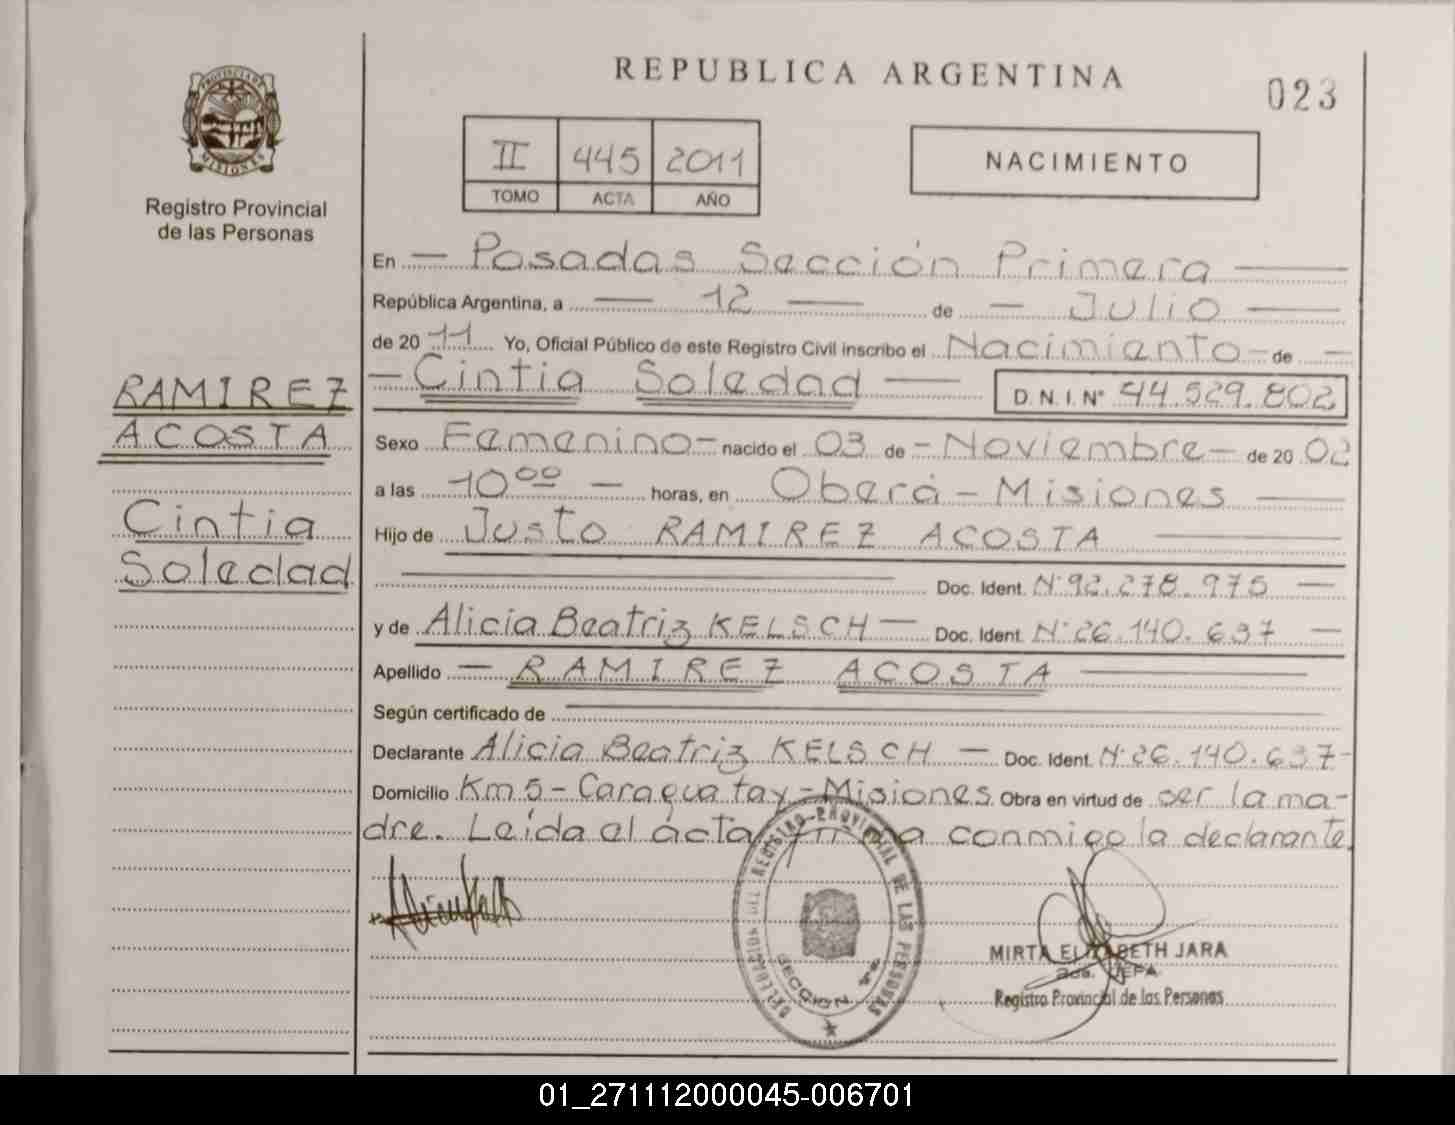 REPUBLICA ARGENTINA
023
PROVINCIA DE MISIONES
Registro Provincial
de las Personas
II 445 2011
TOMO ACTA AÑO
NACIMIENTO
En Posadas Sección Primera
República Argentina, a 12 de Julio
de 2011 Yo, Oficial Público de este Registro Civil inscribo el Nacimiento de
Cintia Soledad D. N. I. N° 44.529.802
RAMIREZ
ACOSTA
Cintia
Soledad
Sexo Femenino nacido el 03 de Noviembre de 20 02
a las 10 00 horas, en Oberá - Misiones
Hijo de Justo RAMIREZ ACOSTA
Doc. Ident. N° 92.278.975
y de Alicia Beatriz KELSCH Doc. Ident. N° 26.140.637
Apellido RAMIREZ ACOSTA
Según certificado de
Declarante Alicia Beatriz KELSCH Doc. Ident. N° 26.140.637
Domicilio Km 5 - Caraguatay - Misiones Obra en virtud de ser la ma-
dre. Leída el acta firma conmigo la declarante
DELEGACION DEL REGISTRO PROVINCIAL DE LAS PERSONAS
SECCION 1ª
MIRTA ELIZABETH JARA
JEFA
Registro Provincial de las Personas
01_271112000045-006701